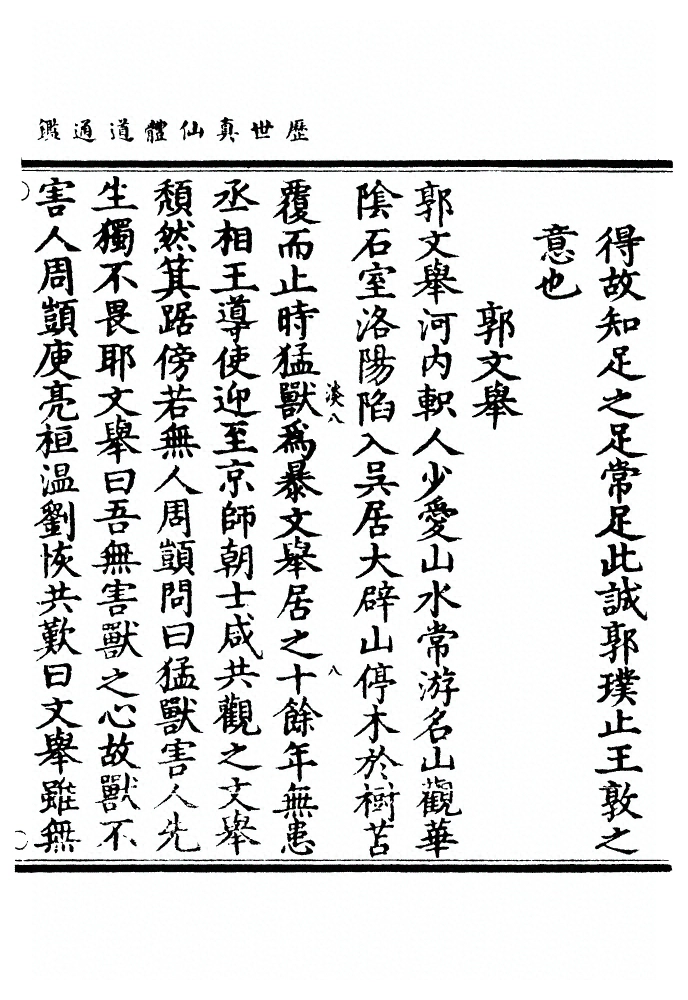 歷世真仙體道通鑑
得故知足之足常足此誠郭璞止王敦之
意也
郭文舉
郭文舉河内軹人少愛山水常游名山觀華
陰石室洛陽陷入吳居大辟山停木於樹苫
覆而止時猛獸爲暴文舉居之十餘年無患
淡八
八
丞相王導使迎至京師朝士咸共觀之文舉
頹然箕踞傍若無人周顗問曰猛獸害人先
生獨不畏耶文舉曰吾無害獸之心故獸不
害人周顗庾亮桓温劉恢共歎曰文舉雖無